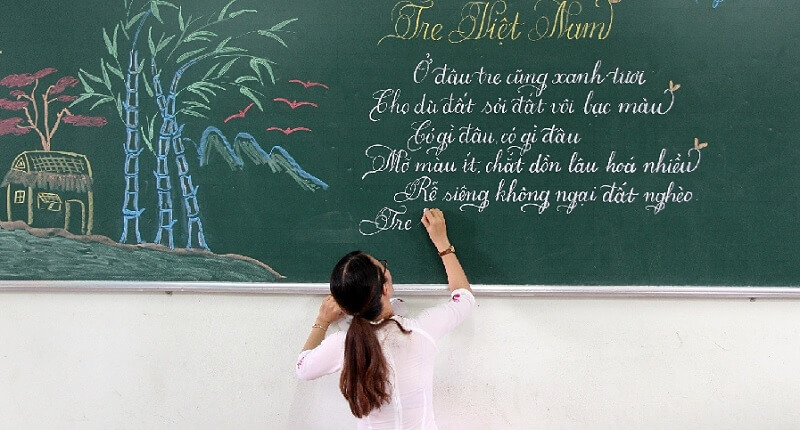 Tre Việt Nam
Ở đâu tre cũng xanh tươi
Cho dù đất sỏi đất vôi bạc màu
Có gì đâu, có gì đâu
Mỡ màu ít, chắt dồn lâu hoá nhiều
Rễ siêng không ngại đất nghèo
Tre